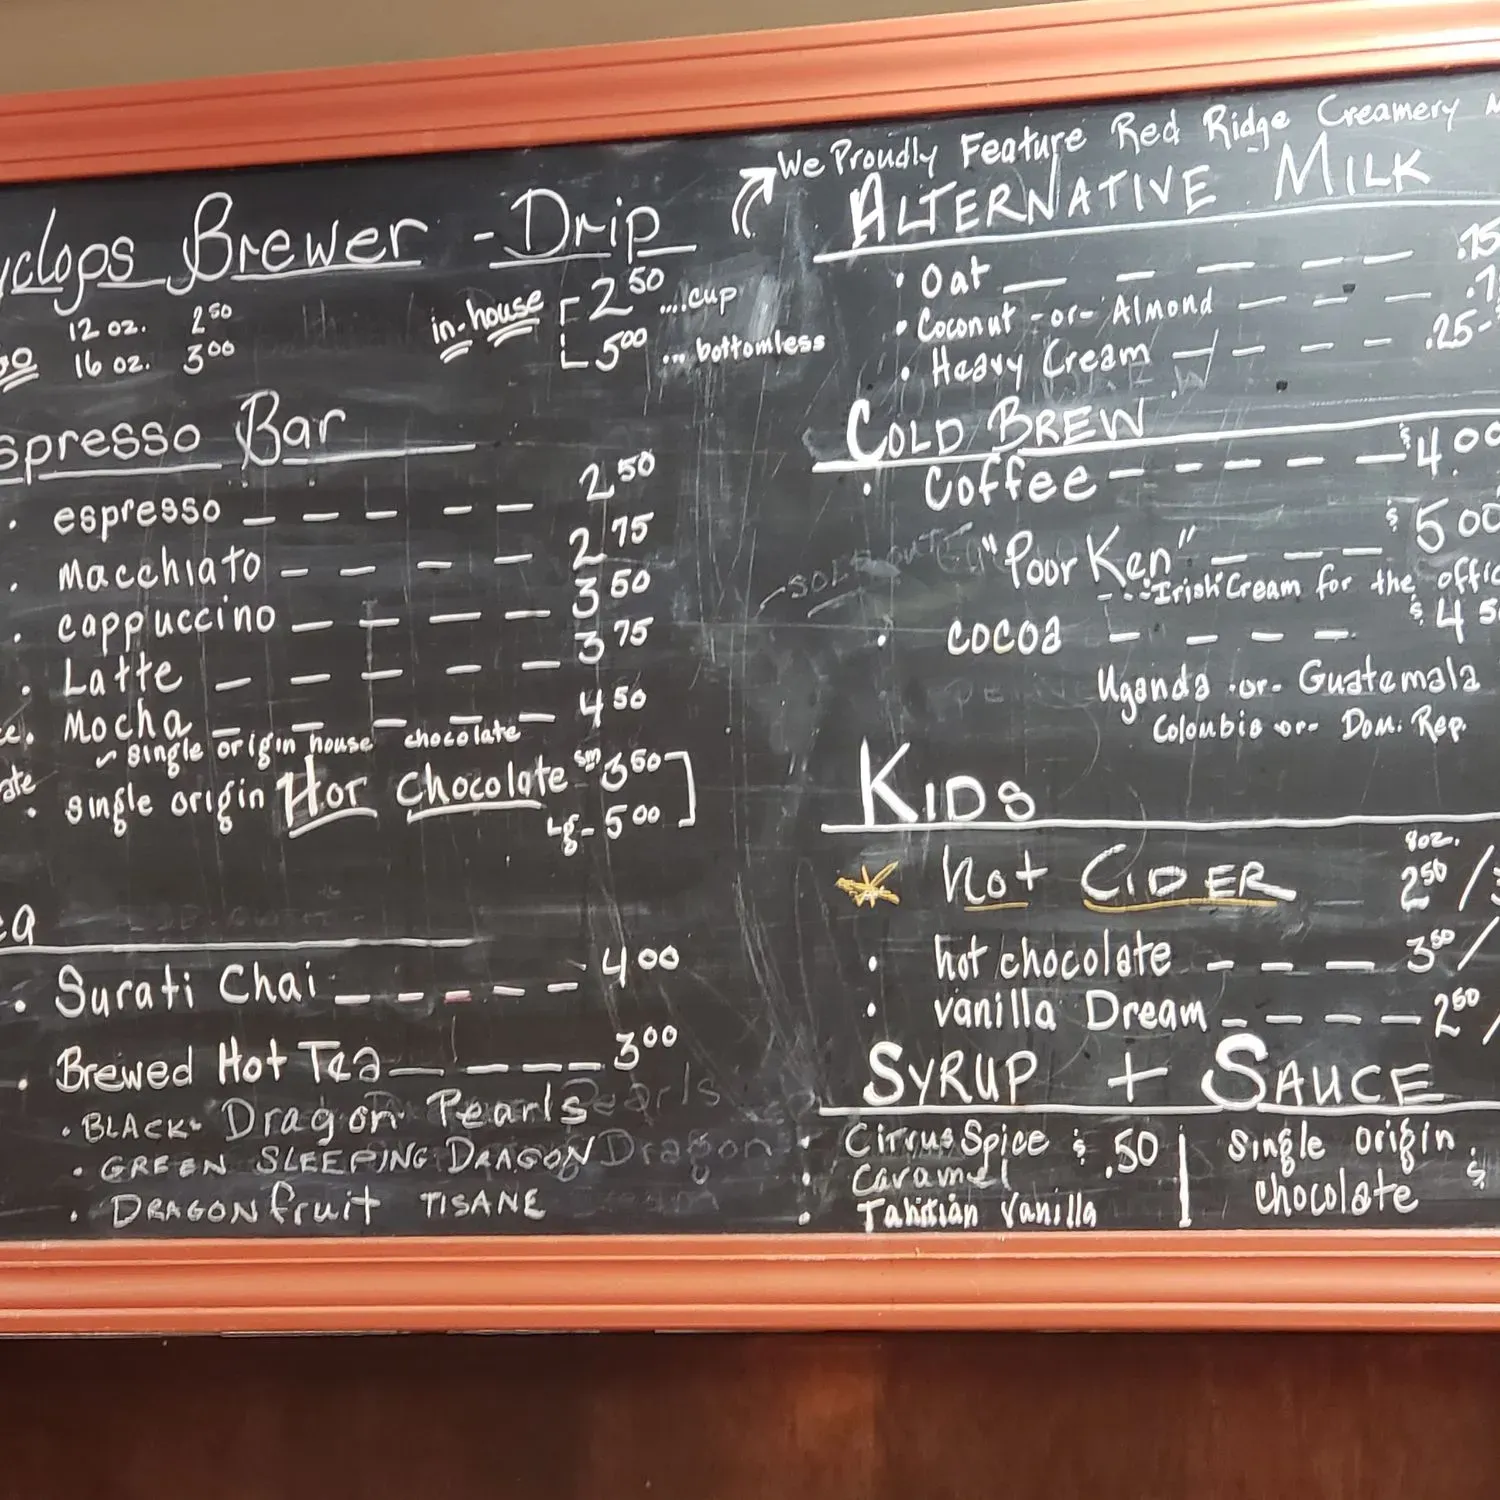 We Proudly Feature Red Ridge Creamery
Brewer - Drip
12 oz. 2 50
16 oz. 3 00
in-house 2 50 ....cup
5 00 ... bottomless
Bar
• espresso 2 50
• Macchiato 2 75
• cappuccino 3 50
• Latte 3 75
• Mocha 4 50
single origin house chocolate
• single origin Hot Chocolate sm 3 50
Lg - 5 00
• Surati Chai 4 00
• Brewed Hot Tea 3 00
• BLACK - Dragon Pearls
• GREEN SLEEPING DRAGON
• DRAGONfruit TISANE
ALTERNATIVE MILK
• Oat
• Coconut -or- Almond
• Heavy Cream
COLD BREW
• Coffee $4.00
"Poor Ken" $5 00
Irish Cream for the
• COCOA
Uganda -or- Guatemala
Coloubia -or- Dom. Rep.
KIDS
8oz.
hot CIDER 2 50 /
• hot chocolate 3 50 /
• vanilla Dream 2 50 /
SYRUP + SAUCE
• Citrus Spice $ .50
• Caramel
• Tahitian Vanilla
Single Origin
Chocolate $